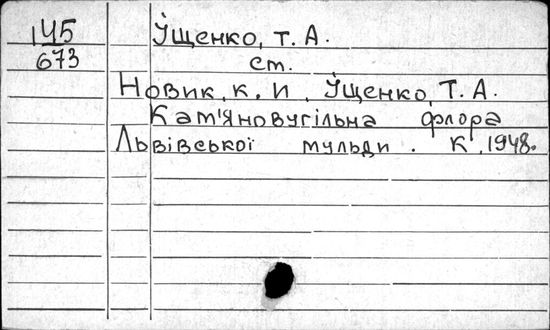 145
673
Їщенко, Т. А.
ст.
Новик, К. И, Їщенко, Т. А.
Кам'яновугільна флора
Львівської мульди. К, 1948.